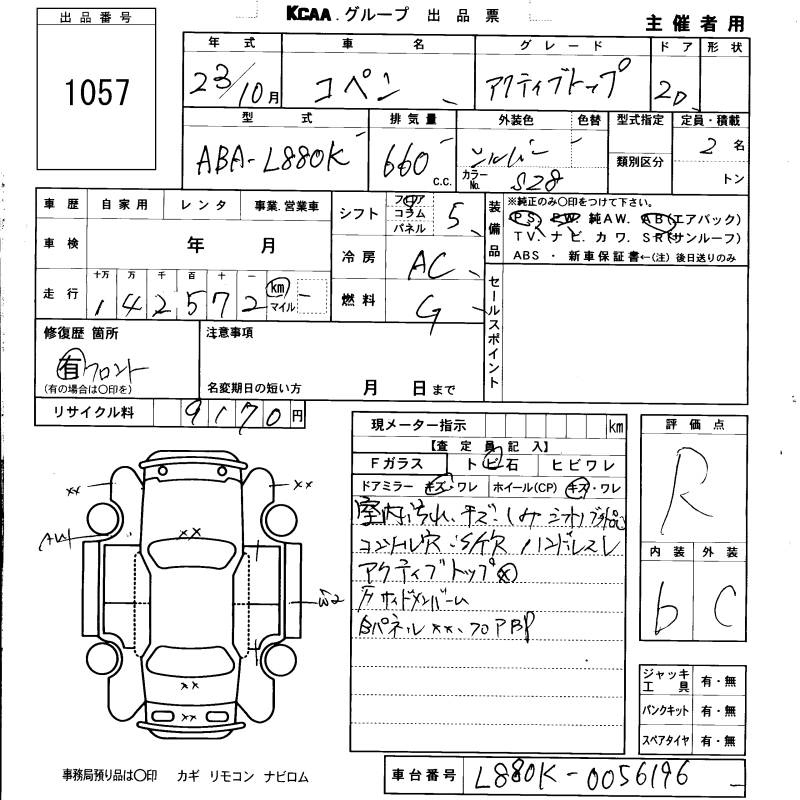 KCAA.グループ 出品票
主催者用
出品番号
1057
年式 車名 グレード ドア 形状
23/10月 コペン アクティブトップ 2D
型式 排気量 外装色 色替 型式指定 定員・積載
ABA-L880K 660 c.c. シルバー カラーNo. S28 類別区分 2名
トン
車歴 自家用 レンタ 事業.営業車
車検 年 月
走行 十万 万 千 百 十 一
1 4 2 5 7 2 km マイル
シフト フロア コラム パネル 5
冷房 AC
燃料 G
装備品
※純正のみ〇印をつけて下さい。
PS PW 純AW. AB(エアバック)
TV. ナビ. カワ. SR(サンルーフ)
ABS ・ 新車保証書←(注) 後日送りのみ
セールスポイント
修復歴 箇所
有 フロント
(有の場合は〇印を)
注意事項
名変期日の短い方 月 日まで
リサイクル料 9170円
現メーター指示 km
【査定員記入】
Fガラス トビ石 ヒビワレ
ドアミラー キズ・ワレ ホイール(CP) キズ・ワレ
室内汚れ、キズ、シミ
コントロール穴
ハンドルスレ
アクティブトップ
サイドメンバーム
パネル xx、
評価点
R
内装 外装
b C
ジャッキ 工具 有・無
パンクキット 有・無
スペアタイヤ 有・無
xx
xx
xx
xx
xx
AW1
W2
事務局預り品は〇印 カギ リモコン ナビロム
車台番号 L880K-0056196